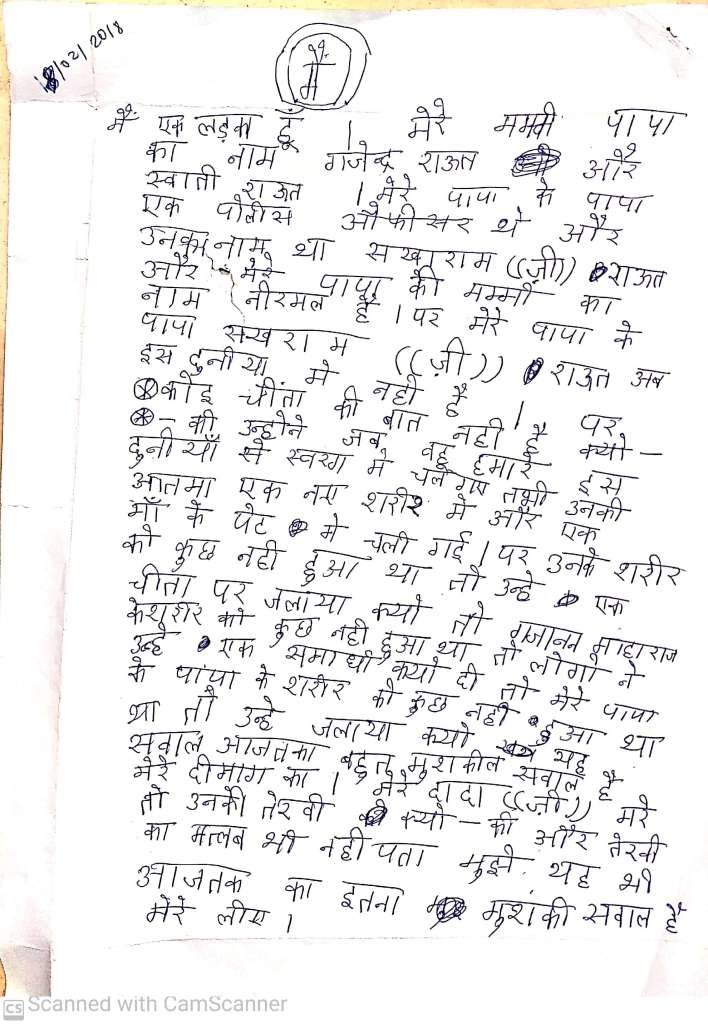 18/02/2018
मैं
मैं एक लड़का हूँ । मेरे मममी पापा
का नाम गजेन्द्र राऊत और
स्वाती राऊत । मेरे पापा के पापा
एक पोलीस औफीसर थे और
उनका नाम था सखाराम ((ज़ी)) राऊत
और मेरे पापा की मम्मी का
नाम नीरमल है । पर मेरे पापा के
पापा सखाराम ((ज़ी)) राऊत अब
इस दुनीया मे नही है । पर
कोइ चींता की बात नही है क्यो –
– की उन्होने जब वह हमारे इस
दुनीयाँ से स्वरग मे चले गए तभी उनकी
आतमा एक नए शरीर मे और एक
माँ के पेट मे चली गई । पर उनके शरीर
को कुछ नही हुआ था तो उन्हे एक
चीता पर जलाया क्यो तो गजानन माहाराज
के शरीर को कुछ नही हुआ था तो लोगो ने
उन्हे एक समाधी क्यो दी तो मेरे पापा
के पापा के शरीर को कुछ नही हुआ था
था तो उन्हे जलाया क्यो यह
सवाल आजतका बहुत मुशकील सवाल है
मेरे दीमाग का । मेरे दादा ((ज़ी)) मरे
तो उनकी तेरवी क्यो – की और तेरवी
का मतलब भी नही पता मुझे यह भी
आजतक का इतना मुशकी सवाल है
मेरे लीए ।
CS Scanned with CamScanner